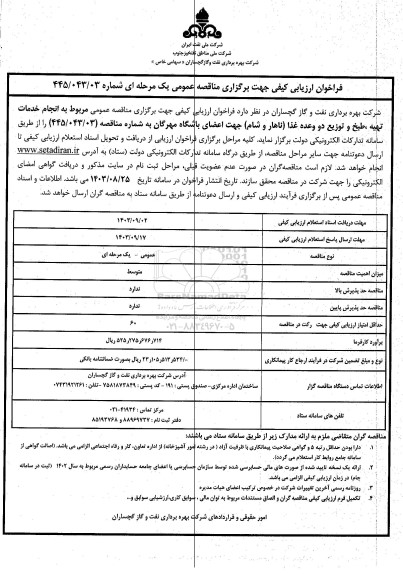 شرکت ملی نفت ایران
شرکت ملی مناطق نفتخیز جنوب
شرکت بهره برداری نفت و گاز گچساران (سهامی خاص)
فراخوان ارزیابی کیفی جهت برگزاری مناقصه عمومی یک مرحله ای شماره ۴۴۵/۰۴۳/۰۳
شرکت بهره برداری نفت و گاز گچساران در نظر دارد فراخوان ارزیابی کیفی جهت برگزاری مناقصه عمومی مربوط به انجام خدمات
تهیه ،طبخ و توزیع دو وعده غذا (ناهار و شام) جهت اعضای باشگاه مهرگان به شماره مناقصه (۴۴۵/۰۴۳/۰۳) را از طریق
سامانه تدارکات الکترونیکی دولت برگزار نماید. کلیه مراحل برگزاری فراخوان ارزیابی از دریافت و تحویل اسناد استعلام ارزیابی کیفی تا
ارسال دعوتنامه جهت سایر مراحل مناقصه، از طریق درگاه سامانه تدارکات الکترونیکی دولت (ستاد) به آدرس www.setadiran.ir
انجام خواهد شد. لازم است مناقصه‌گران در صورت عدم عضویت قبلی، مراحل ثبت نام در سایت مذکور و دریافت گواهی امضای
الکترونیکی را جهت شرکت در مناقصه محقق سازند. تاریخ انتشار فراخوان در سامانه تاریخ ۱۴۰۳/۰۸/۲۵ می باشد. اطلاعات و اسناد
مناقصه عمومی پس از برگزاری فرآیند ارزیابی کیفی و ارسال دعوتنامه از طریق سامانه ستاد به مناقصه گران ارسال خواهد شد.
مهلت دریافت اسناد استعلام ارزیابی کیفی ۱۴۰۳/۰۹/۰۲
مهلت ارسال پاسخ استعلام ارزیابی کیفی ۱۴۰۳/۰۹/۱۷
نوع مناقصه عمومی - یک مرحله ای
میزان اهمیت مناقصه متوسط
مناقصه حد پذیرش بالا ندارد
مناقصه حد پذیرش پایین ندارد
حداقل امتیاز ارزیابی کیفی جهت رکت در مناقصه ۶۰
برآورد کارفرما ۵۲۵,۲۷۵,۶۷۶,۷۱۴ ریال
نوع و مبلغ تضمین شرکت در فرآیند ارجاع کار پیمانکاری ریال بصورت ضمانتنامه بانکی
اطلاعات تماس دستگاه مناقصه گزار آدرس شرکت بهره برداری نفت و گاز گچساران
ساختمان اداره مرکزی- صندوق پستی : ۱۹۱ - کد پستی : ۷۵۸۱۸۷۳۸۴۹ -تلفن : ۰۷۴۳۱۹۲۱۲۶۱
تلفن های سامانه ستاد مرکز تماس : ۴۱۹۳۴-۰۲۱
دفتر ثبت نام : ۸۸۹۶۹۷۳۷ و ۸۵۱۹۳۷۶۸
مناقصه گران متقاضی ملزم به ارائه مدارک زیر از طریق سامانه ستاد می باشند:
۱. دارا بودن حداقل رتبه ۵ و گواهی صلاحیت پیمانکاری با ظرفیت آزاد ( در رشته امور آشپزخانه) از اداره تعاون، کار و رفاه اجتماعی الزامی می باشد. (اصالت گواهی از
سامانه جامع روابط کار استعلام می گردد).
۲. ارائه یک نسخه تایید شده از صورت های مالی حسابرسی شده توسط سازمان حسابرسی یا اعضای جامعه حسابداران رسمی مربوط به سال ۱۴۰۲ (ثبت در سامانه
جام) در زمان ارزیابی کیفی الزامی می باشد.
۳. روزنامه رسمی آخرین تغییرات شرکت در خصوص ترکیب اعضای هیات مدیره
۴. تکمیل فرم ارزیابی کیفی مناقصه گران و الصاق مستندات مربوط به توان مالی ، سوابق کاری،ارزشیابی سوابق و...
امور حقوقی و قراردادهای شرکت بهره برداری نفت و گاز گچساران